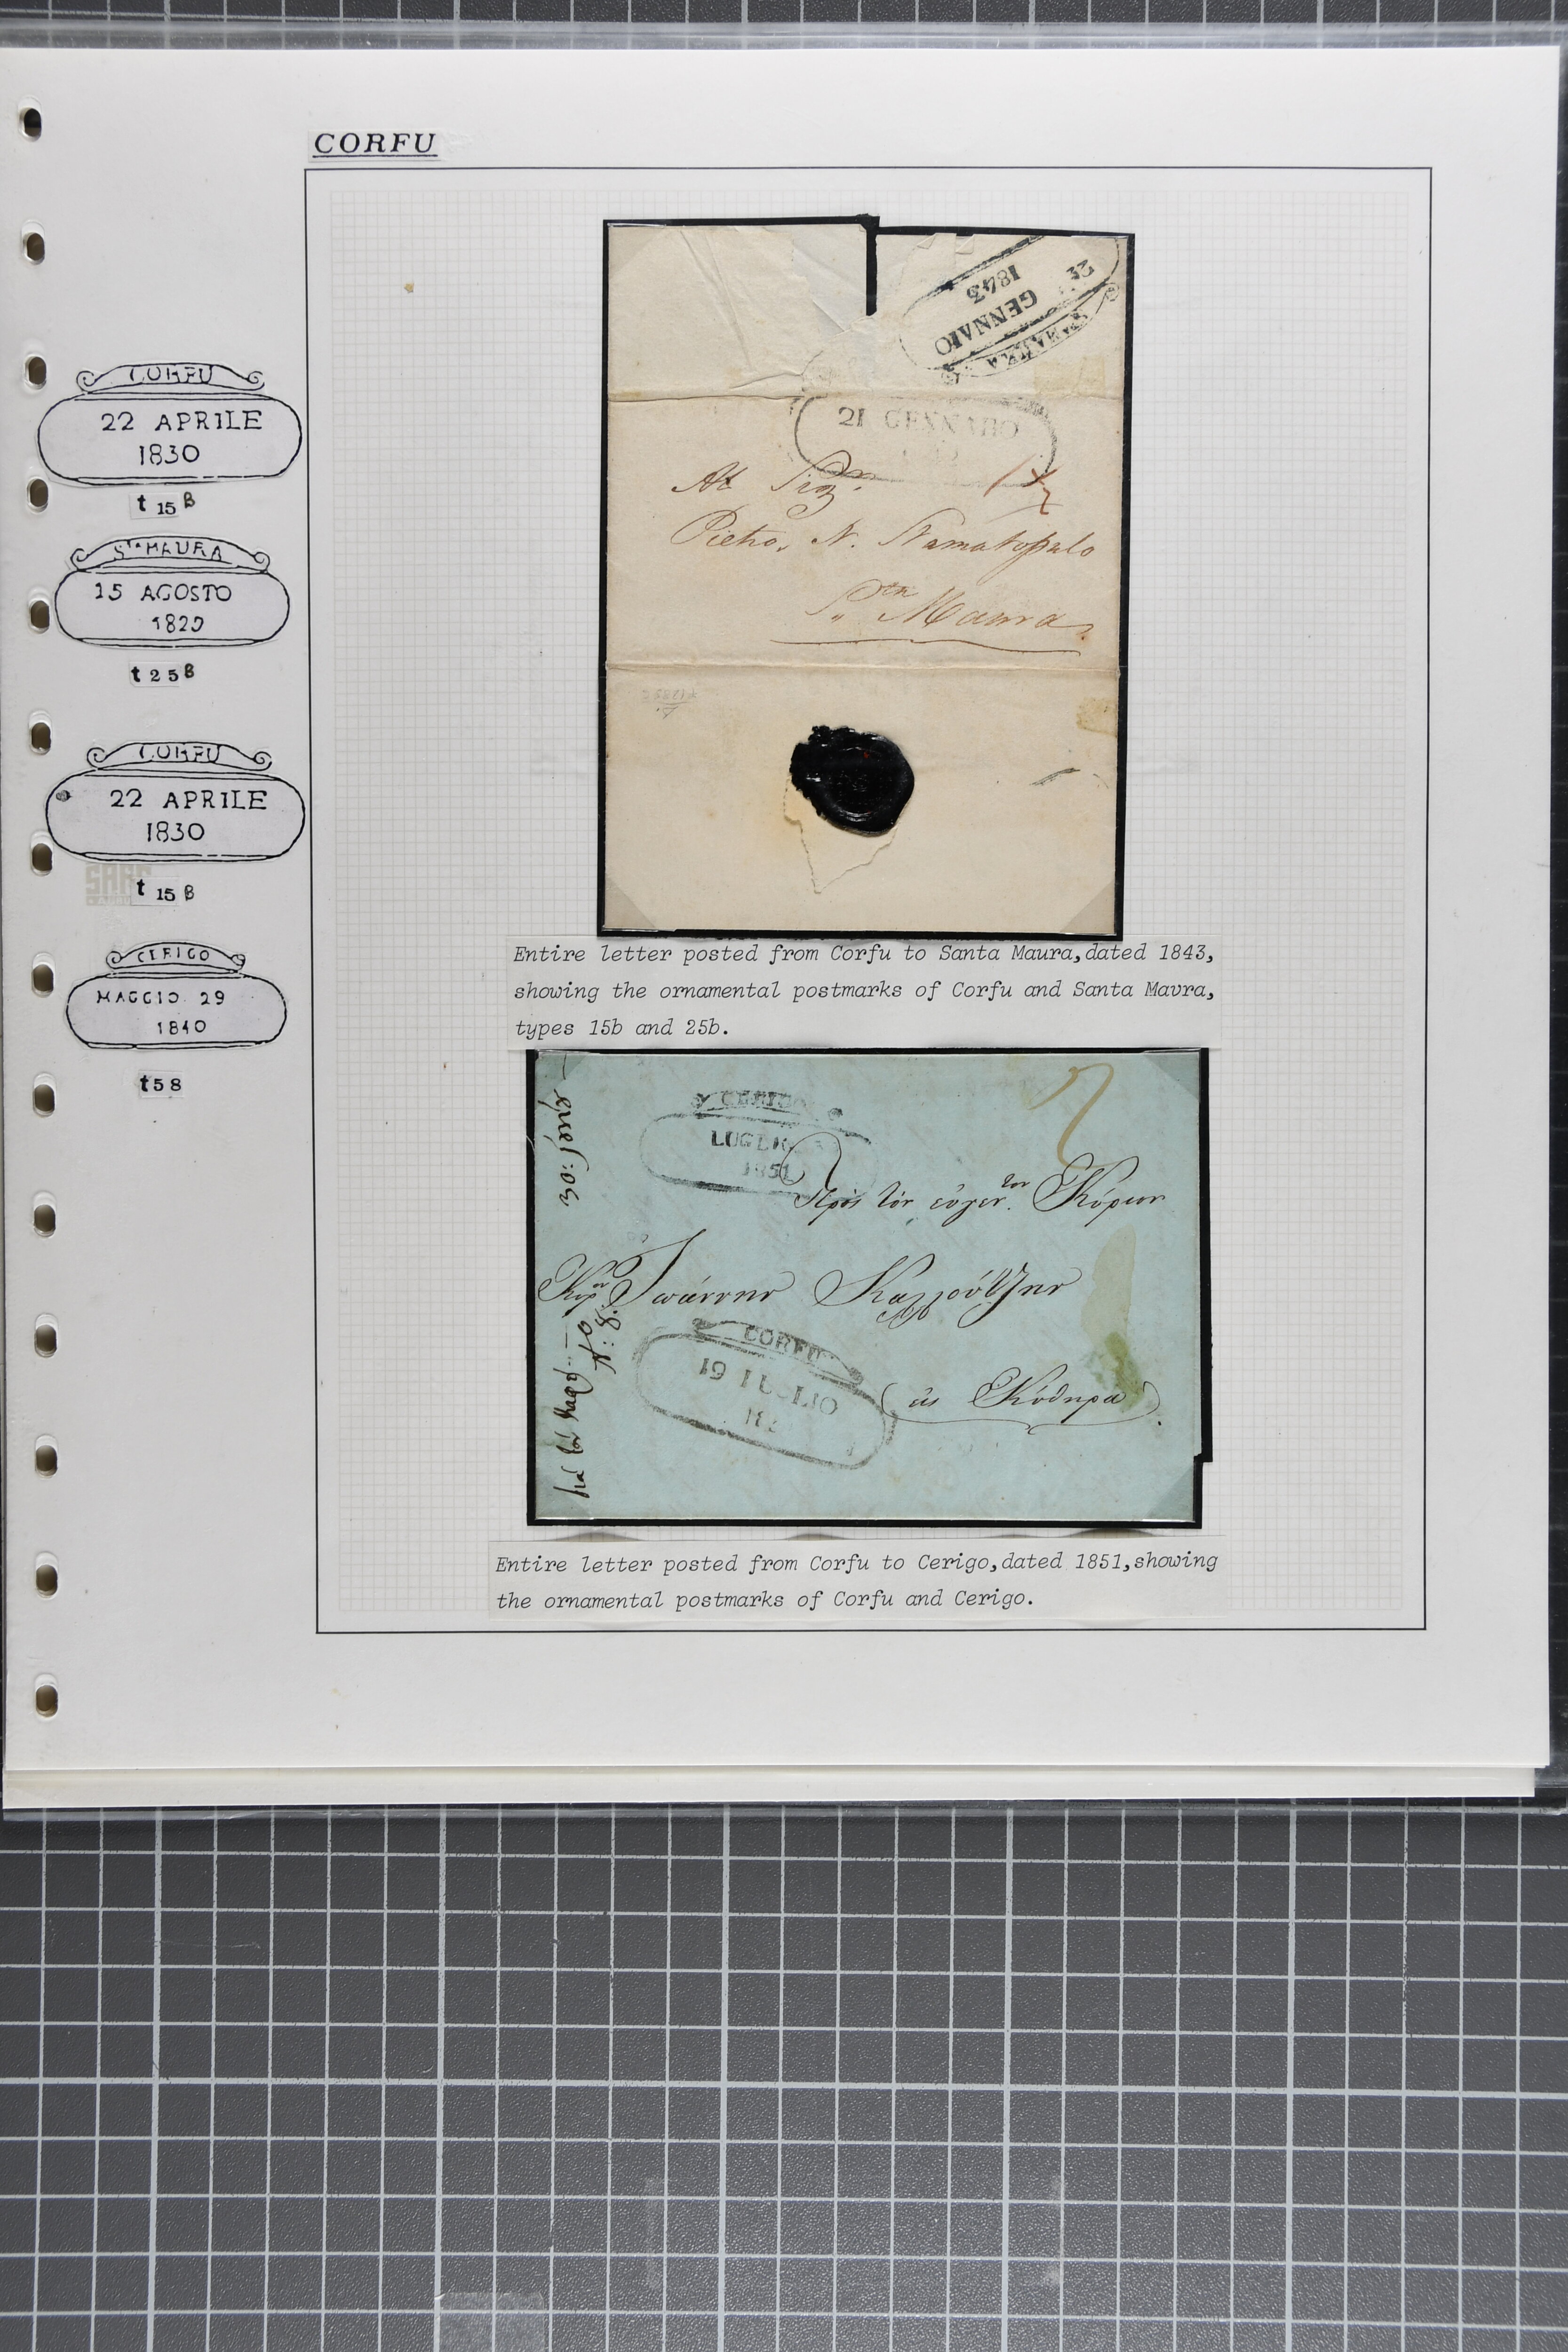 CORFU
CORFU
22 APRILE
1830
t 15 B
Sta MAURA
15 AGOSTO
1829
t 2 5 B
CORFU
22 APRILE
1830
t 15 B
CERIGO
MAGGIO 29
1840
t58
Sta MAURA
GENNAIO
1843
21 GENNARO
Al Sigr.
Pietro N. Stamatopulo
Sta Maura
Entire letter posted from Corfu to Santa Maura,dated 1843,
showing the ornamental postmarks of Corfu and Santa Mavra,
types 15b and 25b.
CERIGO
LUGLIO
1851
Πρὸς τὸν εὐγεν. τον Κύριον
Ἰωάννην
(εἰς Κύθηρα)
N: 8.
CORFU
19 LUGLIO
Entire letter posted from Corfu to Cerigo,dated 1851,showing
the ornamental postmarks of Corfu and Cerigo.